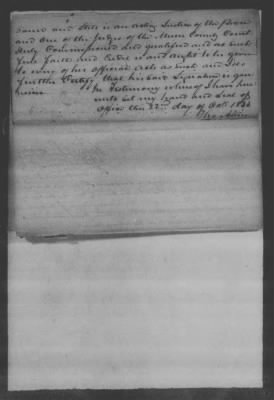 same and still is an acting Justice of the Peace
and one of the Judges of the County Court
duly Commissioned and qualified and as such
full faith and Credit is and ought to be given
to any of his official acts as such and I do
further Certify that his Signature is genuine
In Testimony whereof I have hereunto
set my hand and Seal of
office this 22nd day of Oct